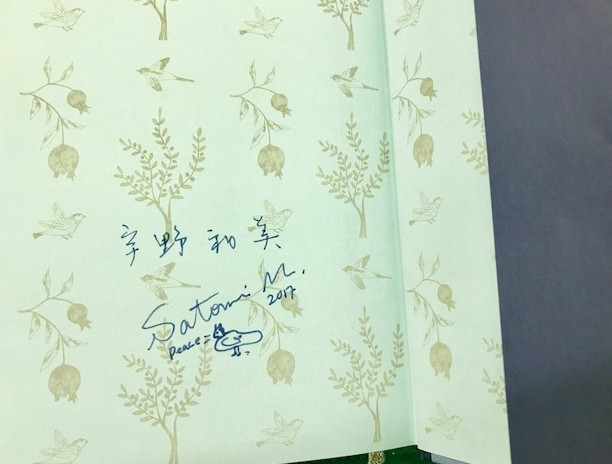 宇野 和美
Satomi M.
2017
peace=